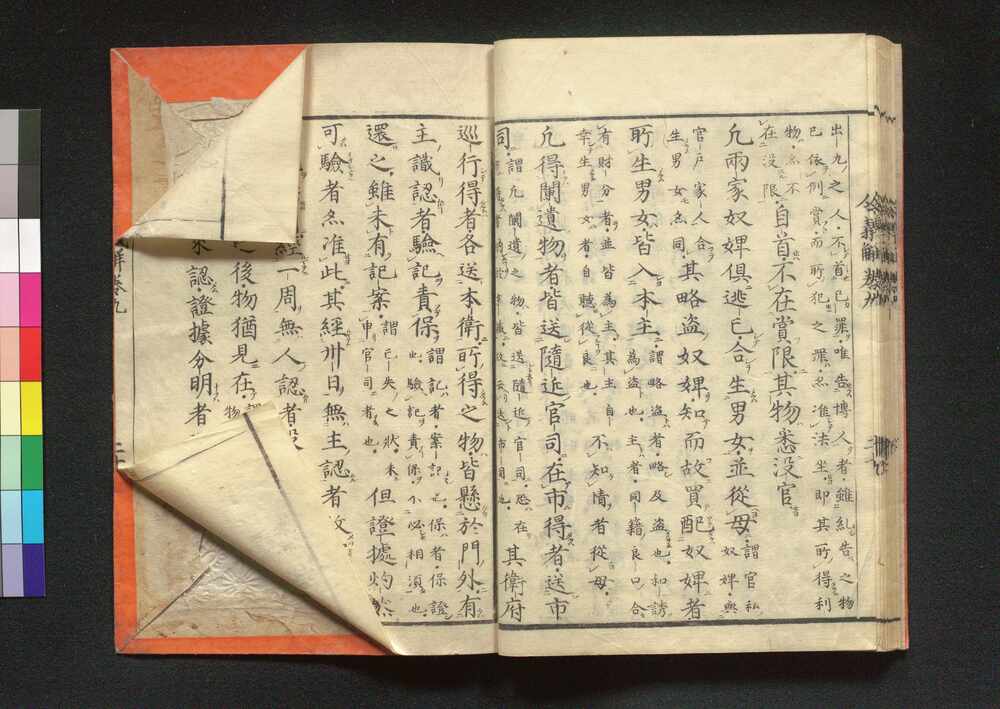 出九之人不首已罪唯告博人者雖糺告之物
已依例賞而所犯之罪亦准法坐即其所得利
物亦不
在没限自首不在賞限其物悉没官
凡兩家奴婢俱逃亡合生男女並從母謂官私奴婢與
官戸家人合
生男女亦同其略盗奴婢知而故買配奴婢者
所生男女皆入本主謂略盗者略及盗也和誘為盗也主者同籍良口合
有財分者並皆為主其主自
幸生男女者自贖從良也不知情者從母
凡得闌遺物者皆送隨近官司在市得者送市
司謂凡闌遺之物皆送隨近官司在其衛府
巡行得者各送本衛所得之物皆懸於門外有
主識認者驗記責保謂記者案記也保者保證也驗記責保不必相須也
還之雖未有記案謂已失之状未申官司者也但證據灼然
可驗者亦准此其經卅日無主認者收
經一周無人認者没
後物猶見在
認證據分明者